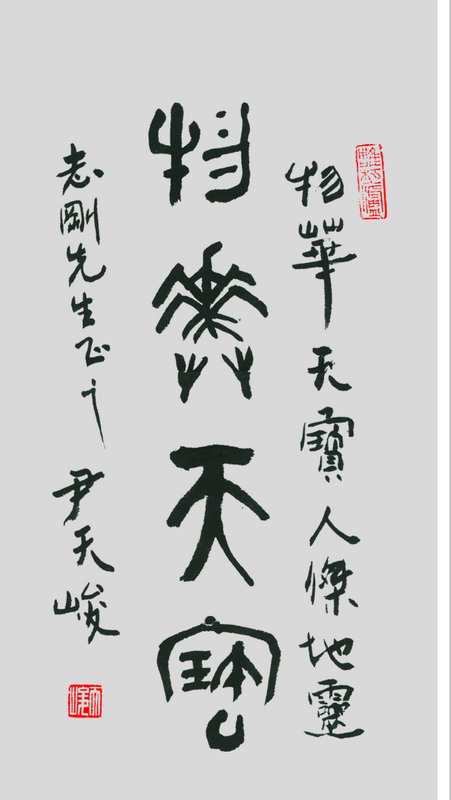 物華天寶人傑地靈
物華天寶
志剛先生正之
尹天峻